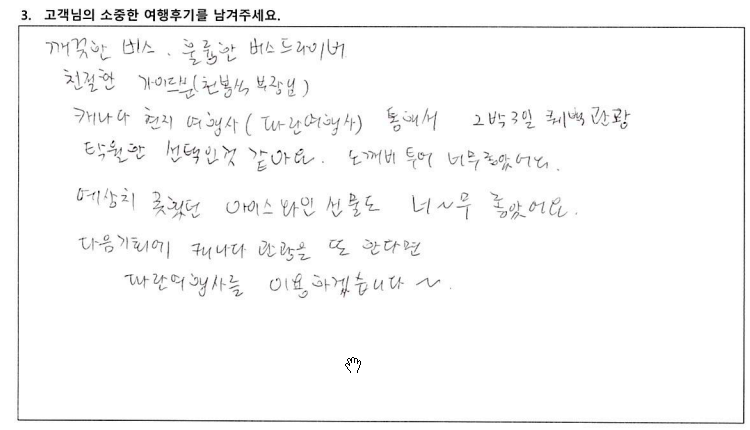 3. 고객님의 소중한 여행후기를 남겨주세요.
깨끗한 버스. 훌륭한 버스드라이버
친절한 가이드분(천봉식 부장님)
캐나다 현지 여행사(파란여행사) 통해서 2박3일 퀘백관광
탁월한 선택인것 같아요. 도깨비 투어 너무좋았어요.
예상치 못했던 아이스와인 선물도 너~무 좋았어요.
다음기회에 캐나다 관광을 또 한다면
파란여행사를 이용하겠습니다~.